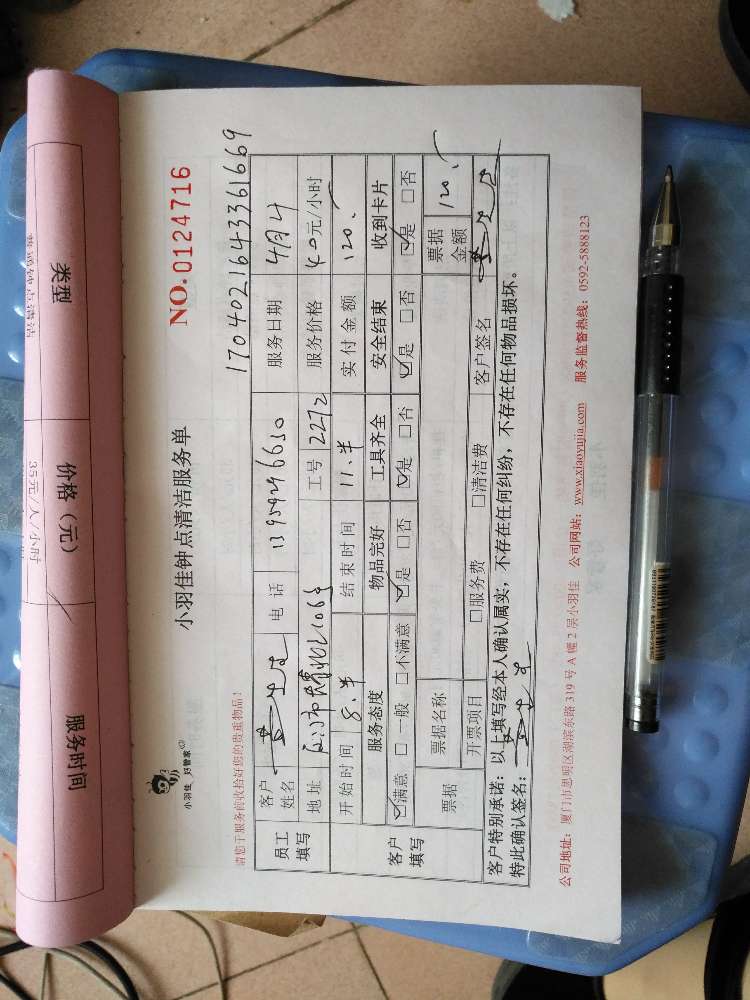 类型 价格（元） 服务时间
35元/人/小时
小羽佳 好管家
小羽佳钟点清洁服务单
NO.0124716
请您于服务前收拾好您的贵重物品！
17040216433361669
员工填写
客户姓名 电话 服务日期 4月4
地址 工号 2272 服务价格 40元/小时
开始时间 8.半 结束时间 11.半 实付金额 120.
客户填写
服务态度 物品完好 工具齐全 安全结束 收到卡片
☑满意 □一般 □不满意 ☑是 □否 ☑是 □否 ☑是 □否 ☑是 □否
票据 票据名称 票据金额 120.
开票项目 □服务费 □清洁费 客户签名
客户特别承诺：以上填写经本人确认属实，不存在任何纠纷，不存在任何物品损坏。
特此确认签名：
公司地址：厦门市思明区湖滨东路319号A幢2层小羽佳 公司网站：www.xiaoyujia.com 服务监督热线：0592-5888123